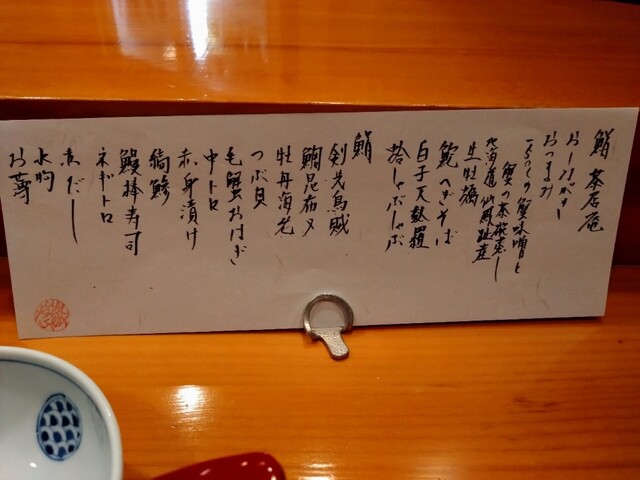 鮨 茶居庵
おしながき
おつまみ
蟹味噌と
蟹の茶碗蒸し
生牡蠣
北海道仙鳳趾産
鮑へぎそば
白子天麩羅
しゃぶしゃぶ
鮨
剣先烏賊
鯛昆布〆
牡丹海老
つぶ貝
毛蟹おはぎ
中トロ
赤身漬け
縞鯵
鰻棒寿司
ネギトロ
赤だし
水物
お薄